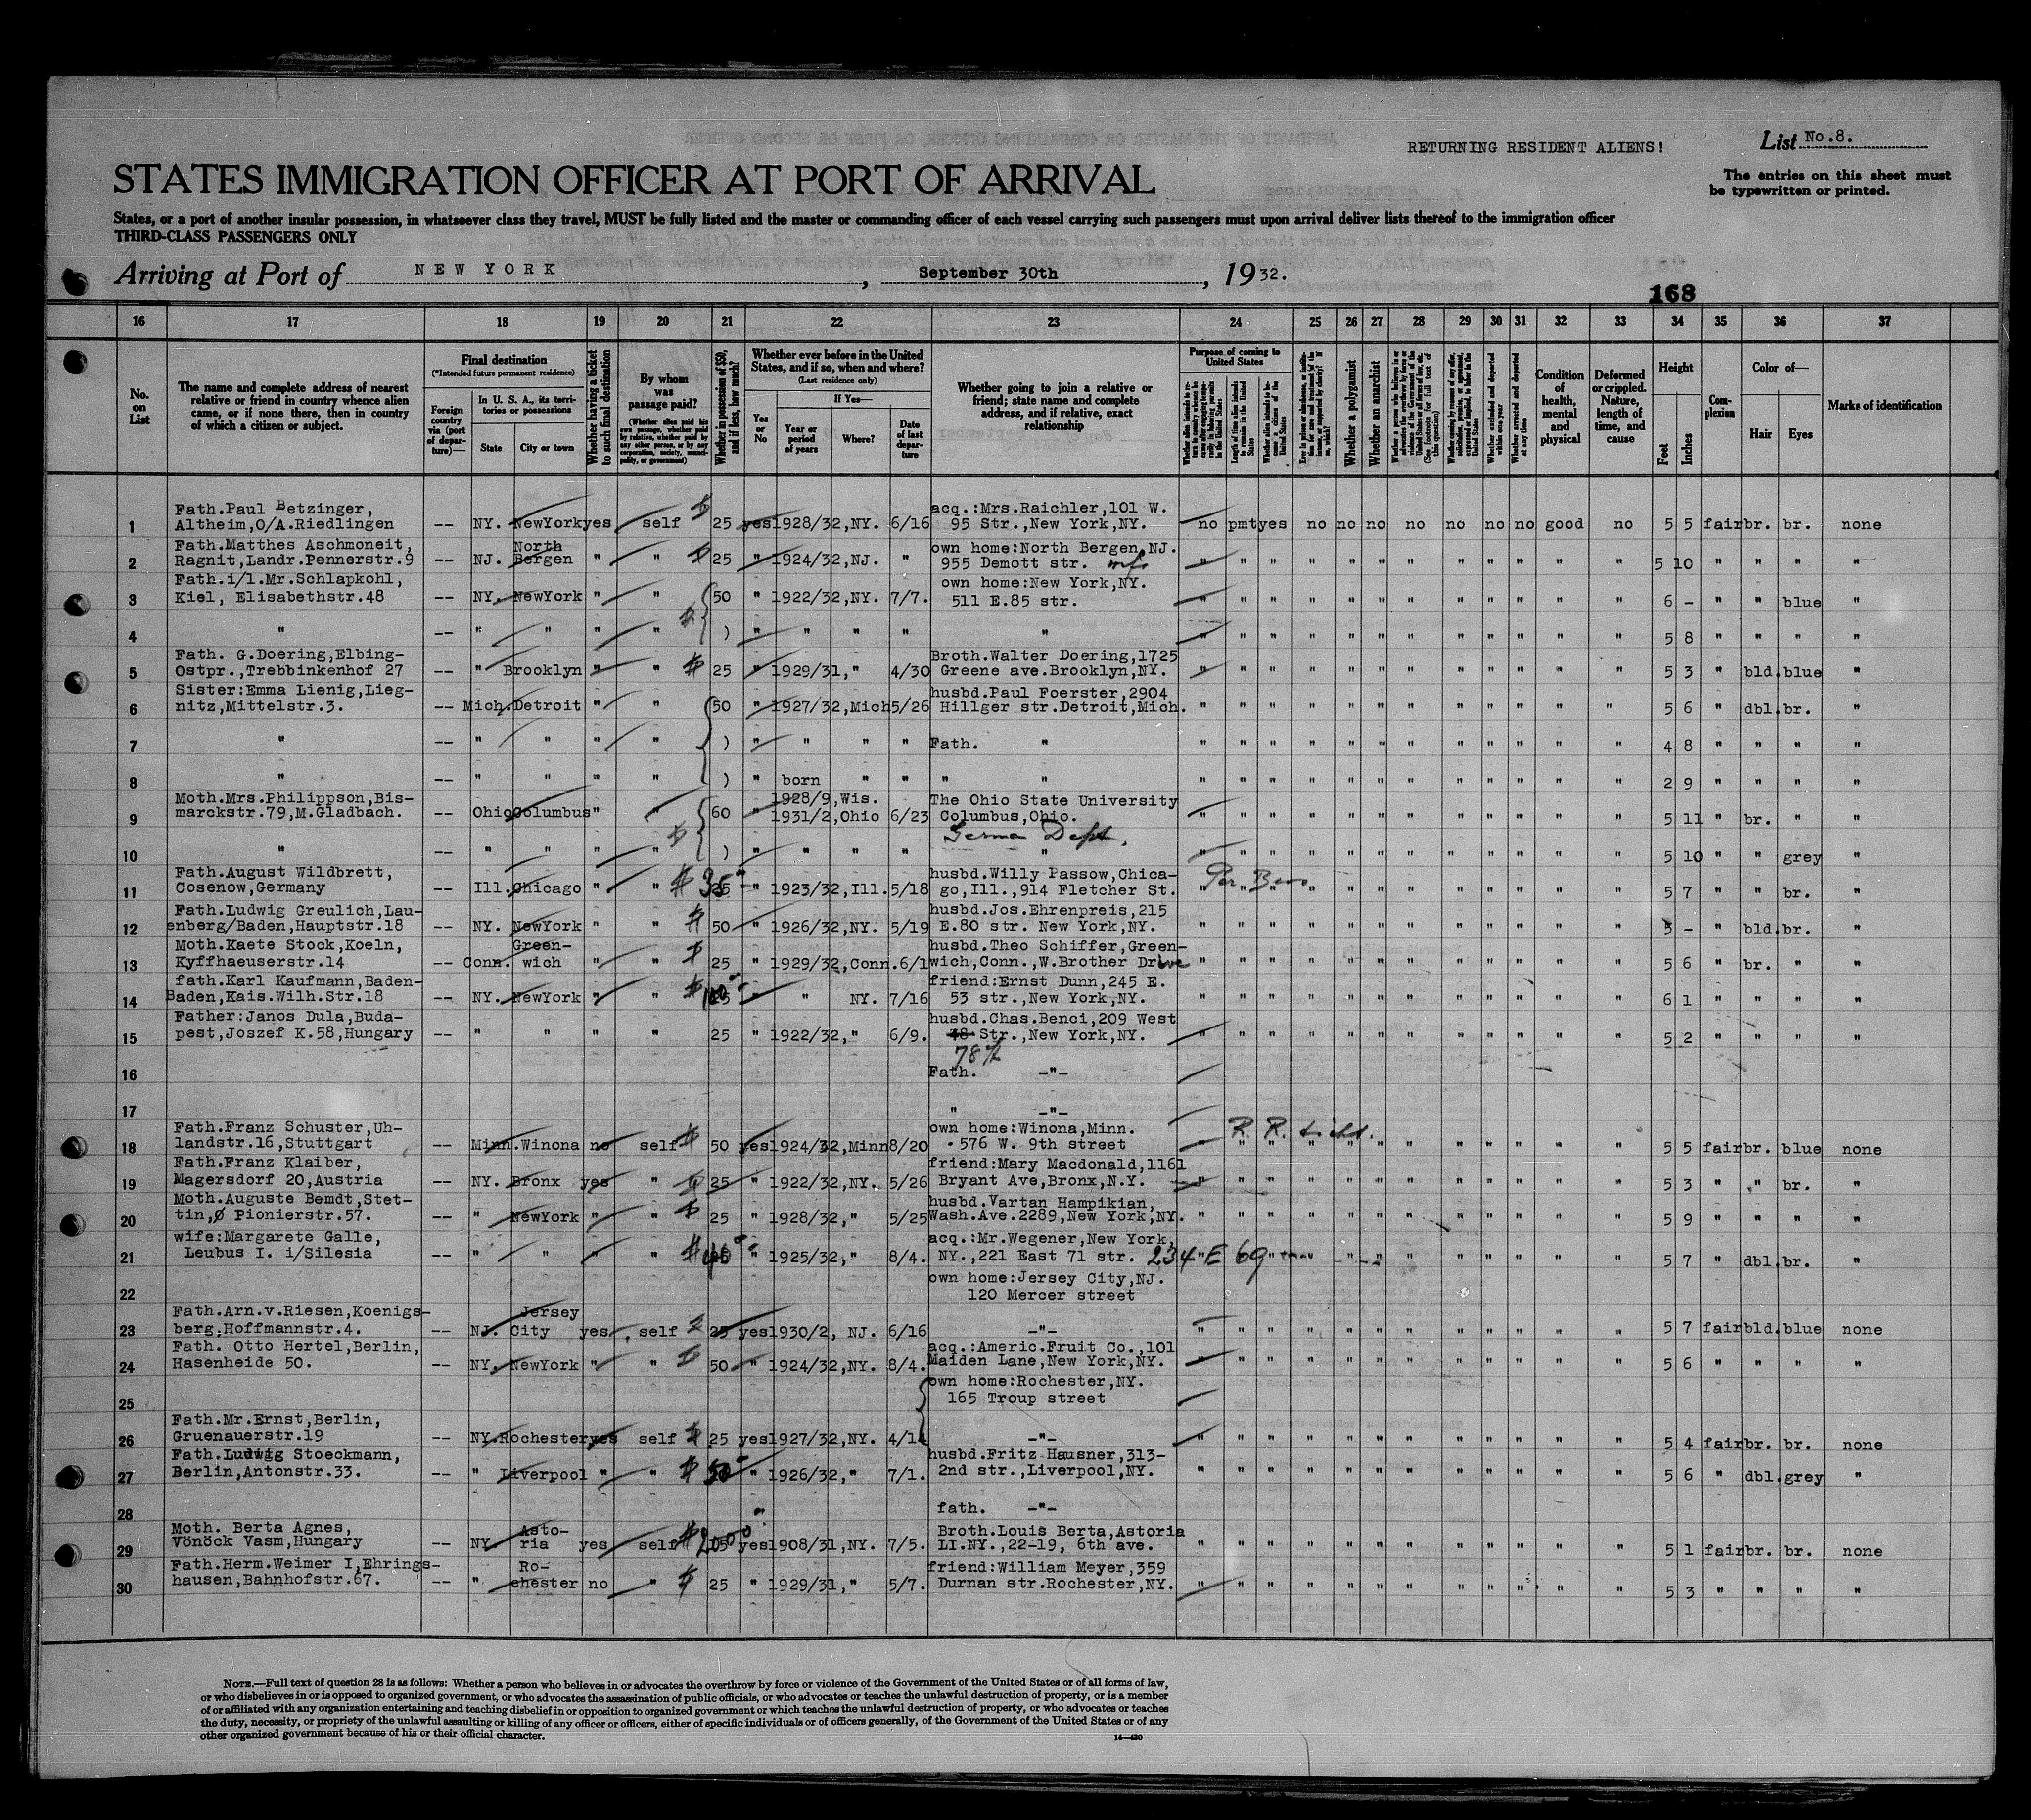 RETURNING RESIDENT ALIENS!
List No.8.
STATES IMMIGRATION OFFICER AT PORT OF ARRIVAL
The entries on this sheet must
be typewritten or printed.
States, or a port of another insular possession, in whatsoever class they travel, MUST be fully listed and the master or commanding officer of each vessel carrying such passengers must upon arrival deliver lists thereof to the immigration officer
THIRD-CLASS PASSENGERS ONLY
Arriving at Port of NEW YORK, September 30th, 1932.
168
16 17 18 19 20 21 22 23 24 25 26 27 28 29 30 31 32 33 34 35 36 37
No. on List
The name and complete address of nearest relative or friend in country whence alien came, or if none there, then in country of which a citizen or subject.
Final destination
(*Intended future permanent residence)
Foreign country via (port of departure)—
In U. S. A., its territories or possessions
State
City or town
Whether having a ticket to such final destination
By whom was passage paid?
(Whether alien paid his own passage, whether paid by relative, whether paid by any other person, or by any corporation, society, municipality, or government)
Whether in possession of $50, and if less, how much?
Whether ever before in the United States, and if so, when and where?
(Last residence only)
Yes or No
If Yes—
Year or period of years
Where?
Date of last departure
Whether going to join a relative or friend; state name and complete address, and if relative, exact relationship
Purpose of coming to United States
Whether a polygamist
Whether an anarchist
Whether arrested and deported at any time
Condition of health, mental and physical
Deformed or crippled. Nature, length of time, and cause
Height
Feet
Inches
Complexion
Color of—
Hair
Eyes
Marks of identification
1 Fath.Paul Betzinger, Altheim,O/A.Riedlingen -- NY. NewYork yes self $ 25 yes 1928/32,NY. 6/16 acq.:Mrs.Raichler,101 W. 95 Str.,New York,NY. no pmt yes no no no no no no no good no 5 5 fair br. br. none
2 Fath.Matthes Aschmoneit, Ragnit,Landr.Pennerstr.9 -- NJ. North Bergen " " $ 25 " 1924/32,NJ. " own home:North Bergen,NJ. 955 Demott str. " " " " " " " " " " " " 5 10 " " " "
3 Fath.i/l.Mr.Schlapkohl, Kiel, Elisabethstr.48 -- NY. NewYork " " 50 " 1922/32,NY. 7/7. own home:New York,NY. 511 E.85 str. " " " " " " " " " " " " 6 - " " blue "
4 " -- " " " " $ ) " " " " " " " " " " " " " " " " " " 5 8 " " " "
5 Fath. G.Doering,Elbing- Ostpr.,Trebbinkenhof 27 -- " Brooklyn " " $ 25 " 1929/31," 4/30 Broth.Walter Doering,1725 Greene ave.Brooklyn,NY. " " " " " " " " " " " " 5 3 " bld. blue "
6 Sister:Emma Lienig,Lieg- nitz,Mittelstr.3. -- Mich. Detroit " " 50 " 1927/32,Mich 5/26 husbd.Paul Foerster,2904 Hillger str.Detroit,Mich. " " " " " " " " " " " " 5 6 " dbl. br. "
7 " -- " " " " ) " " " " Fath. " " " " " " " " " " " " " 4 8 " " " "
8 " -- " " " " ) " born " " " " " " " " " " " " " " " " 2 9 " " " "
9 Moth.Mrs.Philippson,Bis- marckstr.79,M.Gladbach. -- Ohio Columbus " " 60 " 1928/9,Wis. 1931/2,Ohio 6/23 The Ohio State University Columbus,Ohio. " " " " " " " " " " " " 5 11 " br. " "
Germa Dept.
10 " -- " " " " $ ) " " " " " " " " " " " " " " " " " " 5 10 " " grey "
11 Fath.August Wildbrett, Cosenow,Germany -- Ill. Chicago " " $ 35 " 1923/32,Ill. 5/18 husbd.Willy Passow,Chica- go,Ill.,914 Fletcher St. " " " " " " " " " " " " 5 7 " " br. "
12 Fath.Ludwig Greulich,Lau- enberg/Baden,Hauptstr.18 -- NY. NewYork " " $ 50 " 1926/32,NY. 5/19 husbd.Jos.Ehrenpreis,215 E.80 str. New York,NY. " " " " " " " " " " " " 5 - " bld. br. "
13 Moth.Kaete Stock,Koeln, Kyffhaeuserstr.14 -- Conn. Green- wich " " $ 25 " 1929/32,Conn. 6/1 husbd.Theo Schiffer,Green- wich,Conn.,W.Brother Drive " " " " " " " " " " " " 5 6 " br. " "
14 fath.Karl Kaufmann,Baden- Baden,Kais.Wilh.Str.18 -- NY. NewYork " " $ 100 " " NY. 7/16 friend:Ernst Dunn,245 E. 53 str.,New York,NY. " " " " " " " " " " " " 6 1 " " " "
15 Father:Janos Dula,Buda- pest,Joszef K.58,Hungary -- " " " " 25 " 1922/32," 6/9. husbd.Chas.Benci,209 West 48 Str.,New York,NY. " " " " " " " " " " " " 5 2 " " " "
78th
16 Fath. -"-
17 " -"-
18 Fath.Franz Schuster,Uh- landstr.16,Stuttgart -- Minn. Winona no self $ 50 yes 1924/32,Minn 8/20 own home:Winona,Minn. 576 W. 9th street " " " " " " " " " " " " 5 5 fair br. blue none
19 Fath.Franz Klaiber, Magersdorf 20,Austria -- NY. Bronx yes " $ 25 " 1922/32,NY. 5/26 friend:Mary Macdonald,1161 Bryant Ave,Bronx,N.Y. " " " " " " " " " " " " 5 3 " " br. "
20 Moth.Auguste Bemdt,Stet- tin, Pionierstr.57. -- " NewYork " " $ 25 " 1928/32," 5/25 husbd.Vartan Hampikian, Wash.Ave.2289,New York,NY. " " " " " " " " " " " " 5 9 " " " "
21 wife:Margarete Galle, Leubus I. i/Silesia -- " " " " $ " 1925/32," 8/4. acq.:Mr.Wegener,New York, NY.,221 East 71 str. 234 E 69 " " " " " " " 5 7 " dbl. br. "
22 own home:Jersey City,NJ. 120 Mercer street
23 Fath.Arn.v.Riesen,Koenigs- berg,Hoffmannstr.4. -- NJ. Jersey City yes self $ 25 yes 1930/2, NJ. 6/16 -"- " " " " " " " " " " " " 5 7 fair bld. blue none
24 Fath. Otto Hertel,Berlin, Hasenheide 50. -- NY. NewYork " " $ 50 " 1924/32,NY. 8/4. acq.:Americ.Fruit Co.,101 Maiden Lane,New York,NY. " " " " " " " " " " " " 5 6 " " " "
25 own home:Rochester,NY. 165 Troup street
26 Fath.Mr.Ernst,Berlin, Gruenauerstr.19 -- NY. Rochester yes self $ 25 yes 1927/32,NY. 4/14 -"- " " " " " " " " " " " " 5 4 fair br. br. none
27 Fath.Ludwig Stoeckmann, Berlin,Antonstr.33. -- " Liverpool " " $ 50 " 1926/32," 7/1. husbd.Fritz Hausner,313- 2nd str.,Liverpool,NY. " " " " " " " " " " " " 5 6 " dbl. grey "
28 " fath. -"-
29 Moth. Berta Agnes, Vönöck Vasm,Hungary -- NY Asto- ria yes self $ yes 1908/31,NY. 7/5. Broth.Louis Berta,Astoria LI.NY.,22-19, 6th ave. " " " " " " " " " " " " 5 1 fair br. br. none
30 Fath.Herm.Weimer I,Ehrings- hausen,Bahnhofstr.67. -- " Ro- chester no " $ 25 " 1929/31," 5/7. friend:William Meyer,359 Durnan str.Rochester,NY. " " " " " " " " " " " " 5 3 " " " "
NOTE.—Full text of question 28 is as follows: Whether a person who believes in or advocates the overthrow by force or violence of the Government of the United States or of all forms of law,
or who disbelieves in or is opposed to organized government, or who advocates the assassination of public officials, or who advocates or teaches the unlawful destruction of property, or is a member
of or affiliated with any organization entertaining and teaching disbelief in or opposition to organized government or which teaches the unlawful destruction of property, or who advocates or teaches
the duty, necessity, or propriety of the unlawful assaulting or killing of any officer or officers, either of specific individuals or of officers generally, of the Government of the United States or of any
other organized government because of his or their official character.
14—430